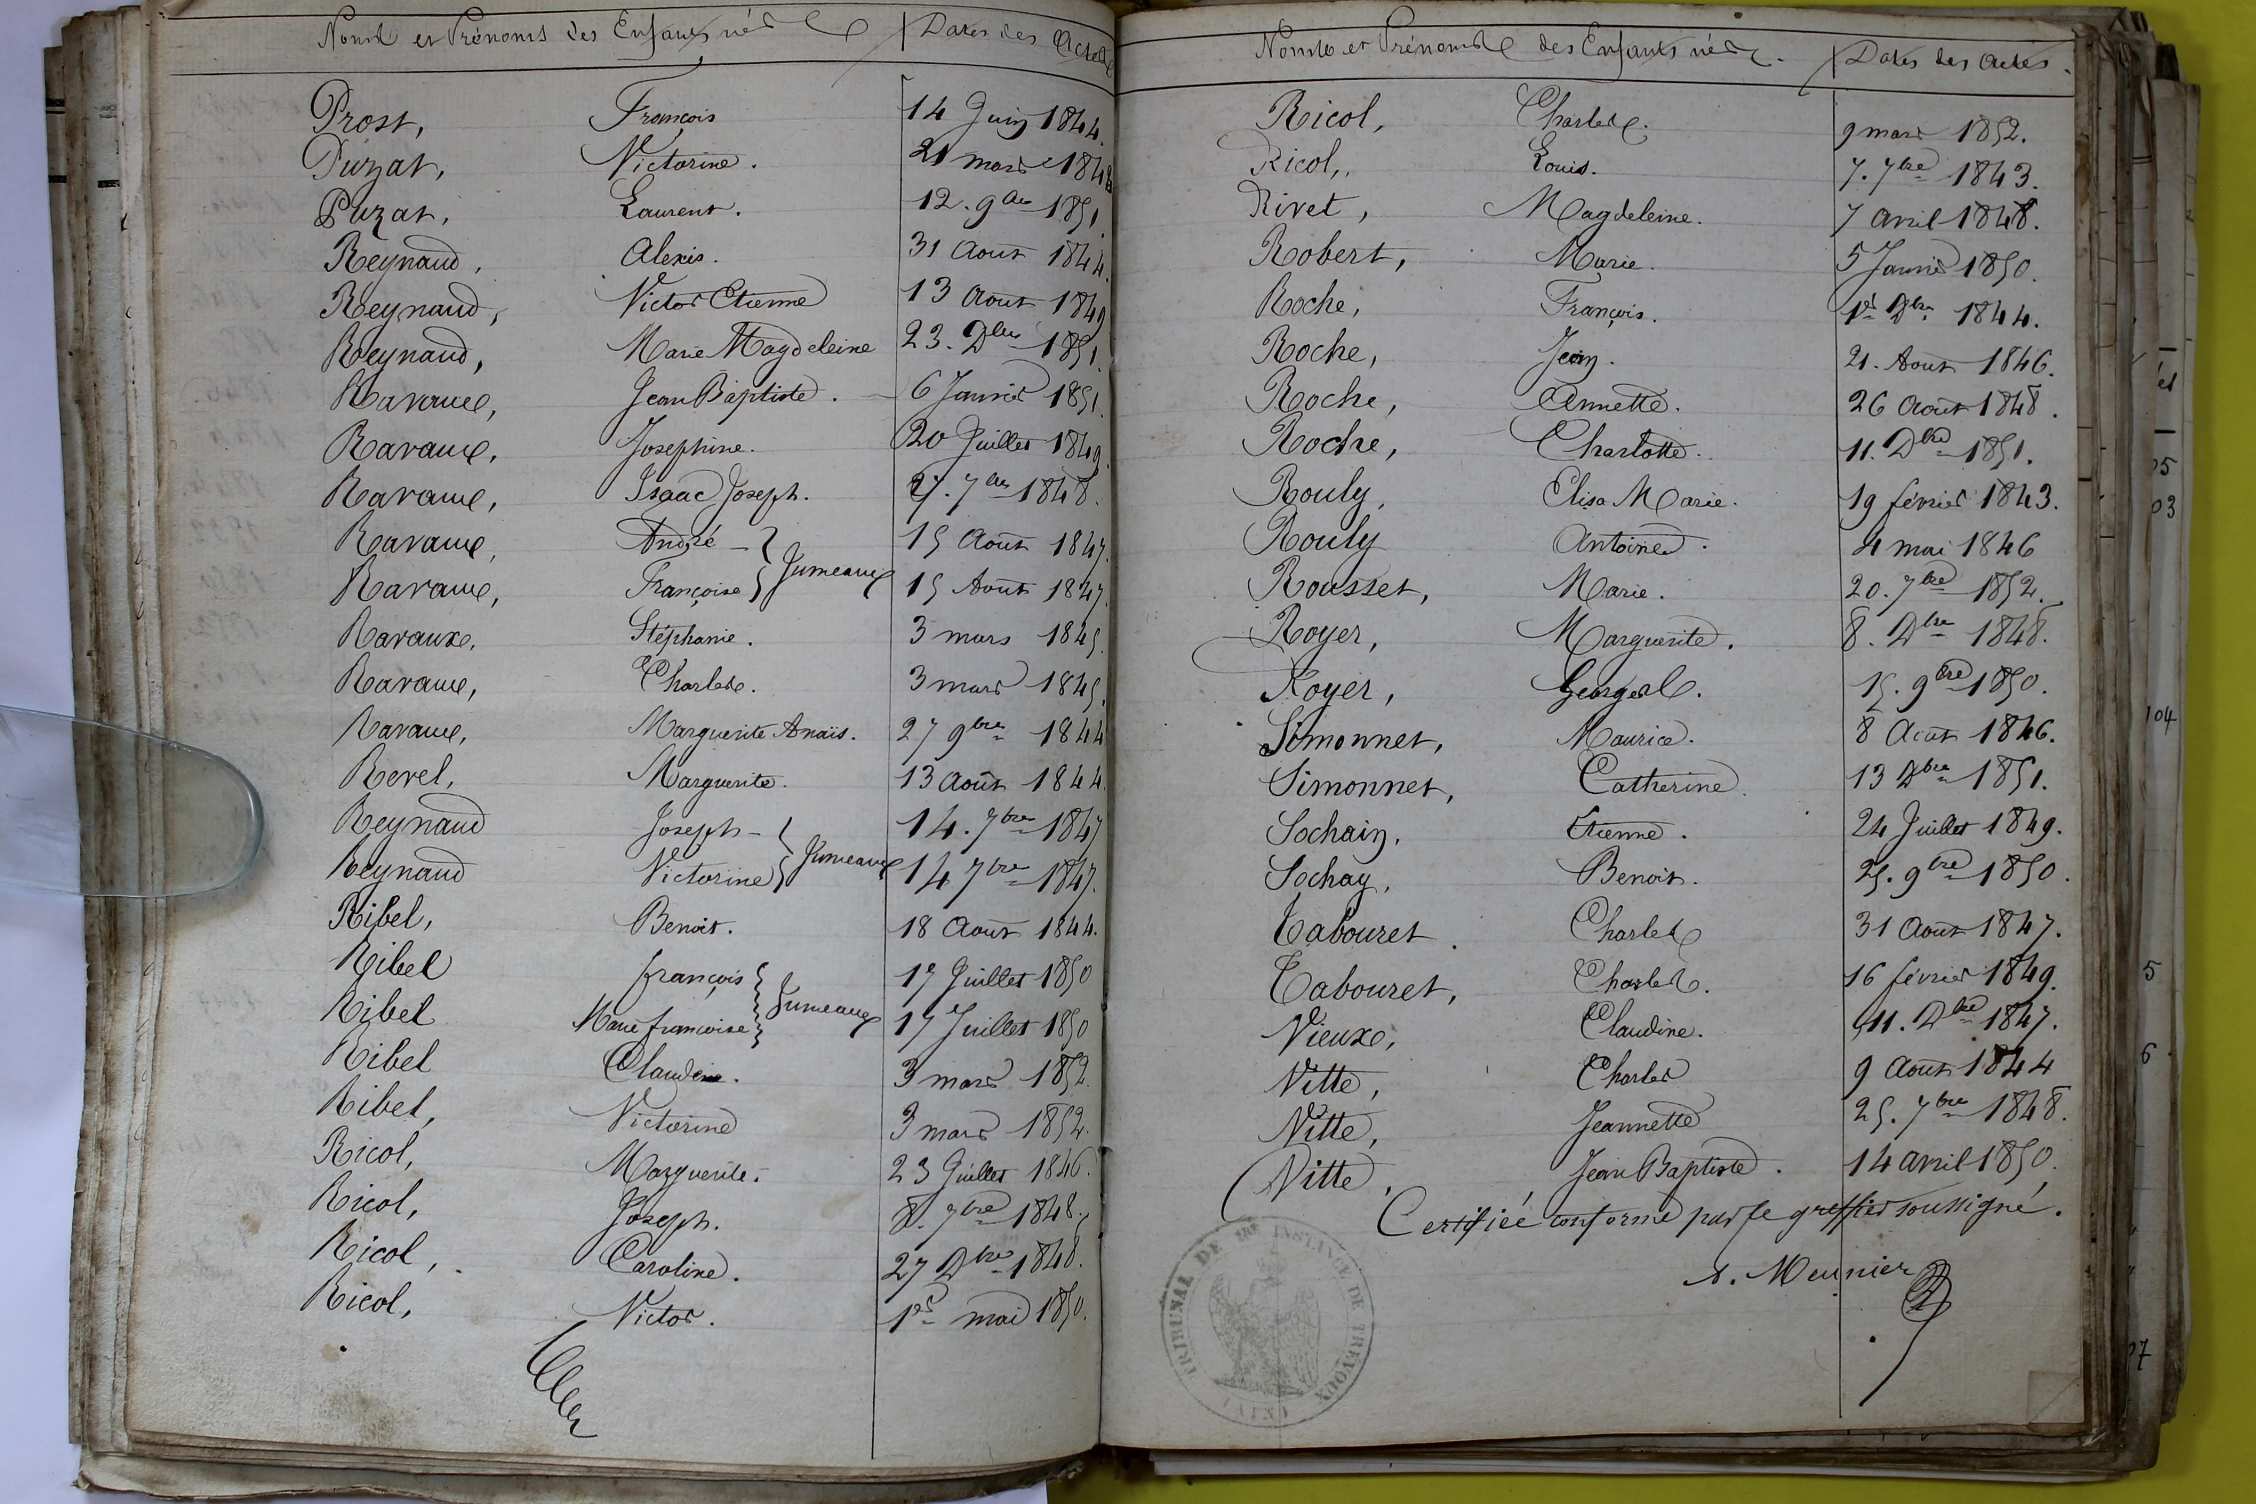 Noms et Prénoms des Enfants nés Dates des Actes
Prost, François 14 Juin 1844.
Puzat, Victorine. 21 mars 1848
Puzat, Laurent. 12. 9bre 1851.
Reynaud, Alexis. 31 Août 1844.
Reynaud, Victor Etienne 13 Août 1849
Reynaud, Marie Magdeleine 23. Dbre 1851.
Ravaux, Jean Baptiste. 6 Janvier 1851.
Ravaux, Josephine. 20 Juillet 1849.
Ravaux, Isaac Joseph. 27. 7bre 1848.
Ravaux, André 15 Août 1847.
Jumeaux
Ravaux, Françoise 15 Août 1847.
Ravaux, Stéphanie. 3 mars 1845.
Ravaux, Charles. 3 mars 1845.
Ravaux, Marguerite Anaïs. 27 9bre 1844
Revel, Marguerite. 13 Août 1844.
Reynaud Joseph 14. 7bre 1847
Jumeaux
Reynaud Victorine 14 7bre 1847.
Ribel, Benoit. 18 Août 1844.
Ribel françois 17 Juillet 1850
Jumeaux
Ribel Marie françoise 17 Juillet 1850
Ribel Claudine. 3 mars 1852.
Ribel, Victorine 3 mars 1852.
Ricol, Marguerite. 23 Juillet 1846.
Ricol, Joseph. 8. 7bre 1848.
Ricol, Caroline. 27 Dbre 1848.
Ricol, Victor. 1er mai 1850.
Noms et Prénoms des Enfants nés. Dates des Actes.
Ricol, Charles. 9 mars 1852.
Ricol, Louis. 7. 7bre 1843.
Rivet, Magdeleine. 7 avril 1848.
Robert, Marie. 5 Janvier 1850.
Roche, François. 1er Dbre 1844.
Roche, Jean. 21. Août 1846.
Roche, Annette. 26 Août 1848.
Roche, Charlotte. 11. Dbre 1851.
Rouly, Elisa Marie. 19 février 1843.
Rouly Antoine. 4 mai 1846
Rousset, Marie. 20. 7bre 1852.
Royer, Marguerite. 8. Dbre 1848.
Royer, Georges. 15. 9bre 1850.
Simonnet, Maurice. 8 Août 1846.
Simonnet, Catherine. 13 Dbre 1851.
Sochain, Etienne. 24 Juillet 1849.
Sochay, Benoit. 25. 9bre 1850.
Tabouret. Charles 31 Août 1847.
Tabouret, Charles. 16 février 1849.
Vieux, Claudine. 11. Dbre 1847.
Vitte, Charles 9 Août 1844
Vitte, Jeannette 25. 7bre 1848.
Vitte, Jean Baptiste. 14 avril 1850.
Certifiée conforme par le greffier soussigné.
A. Meunier
TRIBUNAL DE 1re INSTANCE DE TREVOUX
(AIN)
05
03
104
5
6
07